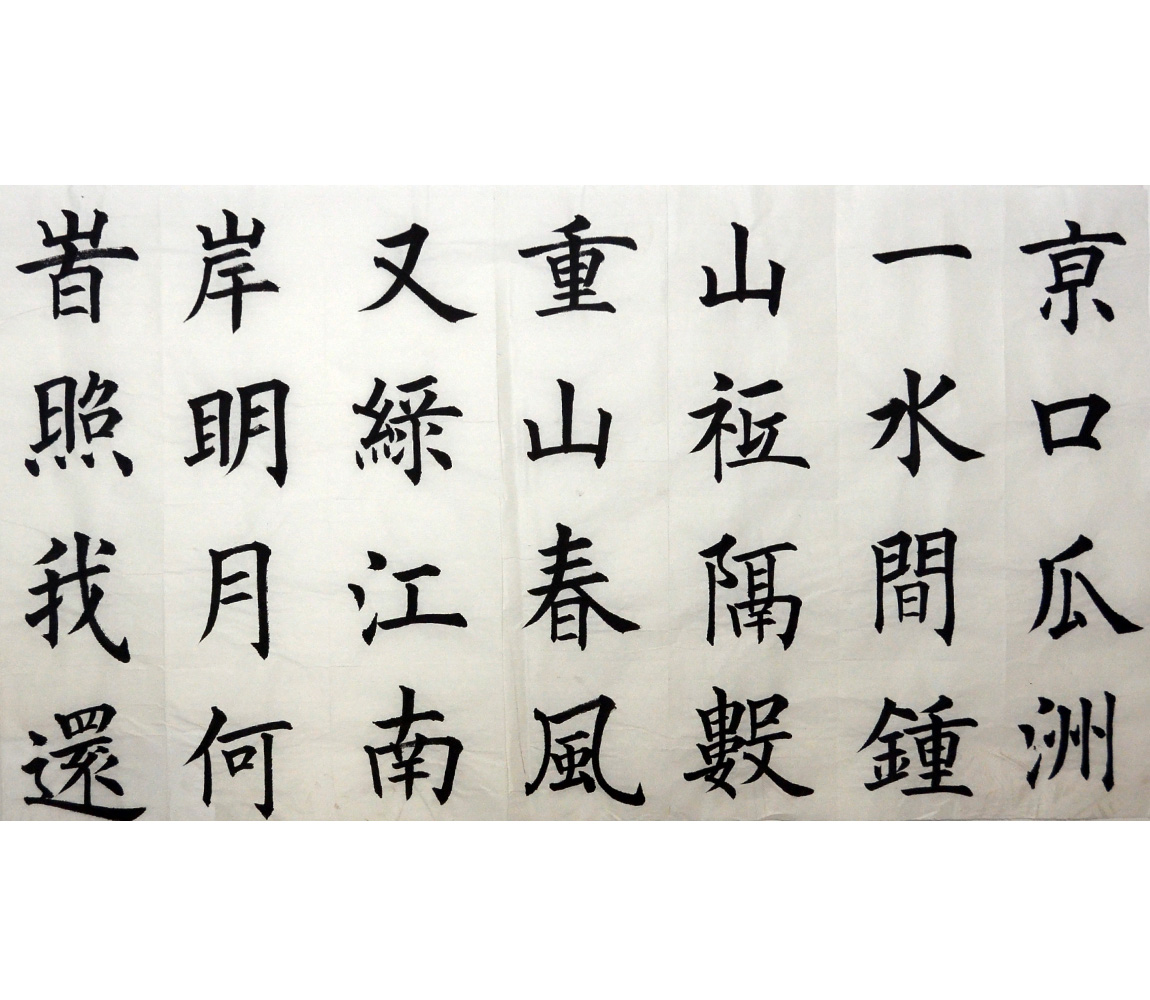 京口瓜洲
一水間鍾
山秖隔數
重山春風
又綠江南
岸明月何
旹照我還